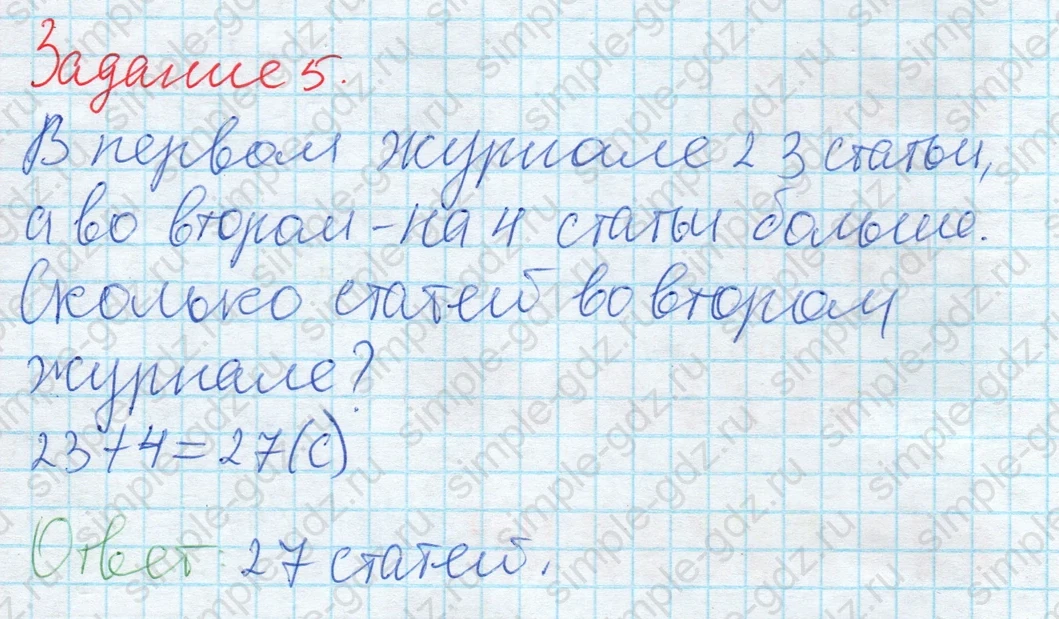 Задание 5.
В первом журнале 23 статьи,
а во втором - на 4 статьи больше.
Сколько статей во втором
журнале?
23+4=27(с)
Ответ: 27 статей.
simple-gdz.ru